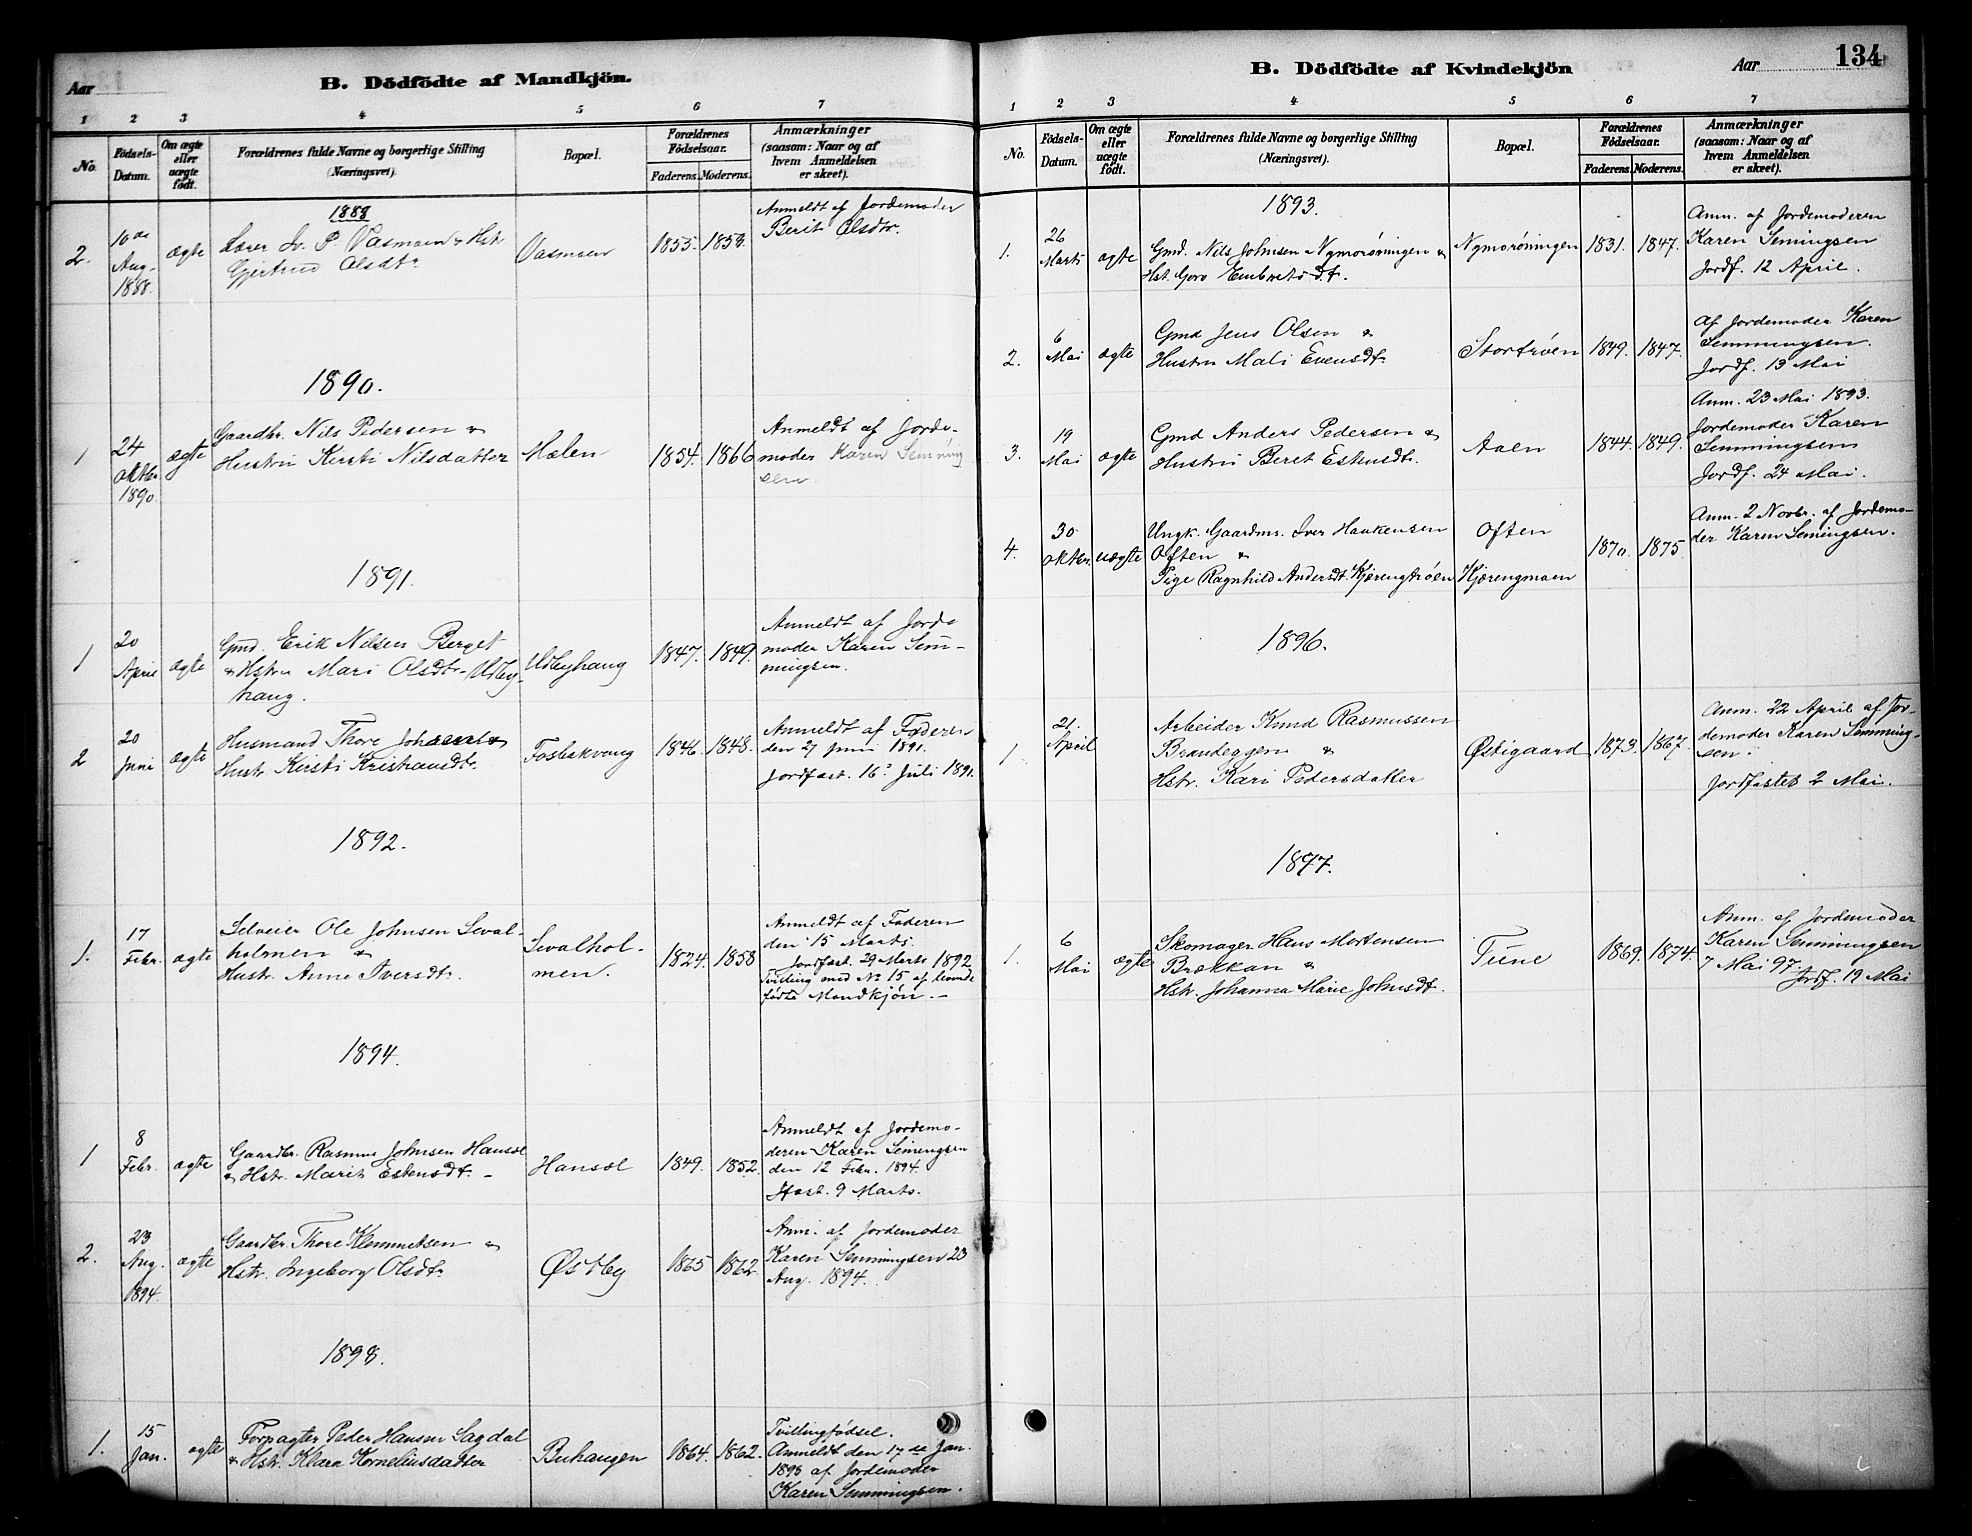 Aar
B. Dödfödte af Mandkjön.
1 2 3 4 5 6 7
No.
Födsels-Datum.
Om ægte eller uægte födt.
Forældrenes fulde Navne og borgerlige Stilling (Næringsvei).
Bopæl.
Forældrenes Födselsaar.
Faderens. Moderens.
Anmærkninger (saasom: Naar og af hvem Anmeldelsen er skeet).
1888
2. 10de Aug. 1888. ægte
Lærer P. Vasmoen & Hst.
Gjertrud Olsdtr
Vasmoen
1855. 1853.
Anmeldt af Jordemoder
Berit Olsdtr.
1890.
1 24 Oktbr. 1890. ægte
Gaardbr. Nils Pedersen &
Hustru Kirsti Nilsdatter
Mælen
1854. 1866
Anmeldt af Jorde-
moder Karen Semming
sen.
1891.
1 20 April ægte
Gmd. Erik Nilsen Berget
& Hstru Mari Olsdtr. Udby-
haug.
Udbyhaug
1847. 1849.
Anmeldt af Jorde
moder Karen Sem-
mingsen.
2 20 Juni ægte
Husmand Thore
Hustr. Kirsti
Fosbakvang
1846. 1848.
Anmeldt af Faderen
den 27 Juni 1891.
Jordfæst. 16. Juli 1891
1892.
1. 17 Febr. ægte
Selveier Ole Johnsen Seval-
holmen &
Hustr. Anne Iversdtr.
Sevalhol-
men.
1824. 1858
Anmeldt af Faderen
den 15 Marts.
Jordfæst. 29 Marts 1892
Tvilling med No 15 af levende
fødte Mandkjøn. –
1894.
1 8 Febr. ægte
Gaardbr. Rasmus Johnsen Hansæl
& Hstr. Marit Estensdtr. –
Hansæl
1849. 1852.
Anmeldt af Jordemo-
deren Karen Semingsen
den 12 Febr. 1894.
9 Marts.
2. 23 Aug. 1894. ægte
Gaardbr. Thore Klemmetsen &
Hstr. Ingeborg Olsdtr
Østby
1865 1862.
Anm. af Jordemoder
Karen Semmingsen 23
Aug. 1894.
1898.
1. 15 Jan. ægte
Forpagter Peder Hansen Sagdal
& Hstr. Klara Korneliusdatter
Buhaugen
1864. 1862.
Tvillingfødsel.
Anmeldt den 17de Jan.
1898 af Jordemoder
Karen Semmingsen.
B. Dödfödte af Kvindekjön
Aar
134
1 2 3 4 5 6 7
No.
Födsels-Datum.
Om ægte eller uægte födt.
Forældrenes fulde Navne og borgerlige Stilling (Næringsvei).
Bopæl.
Forældrenes Födselsaar.
Faderens. Moderens.
Anmærkninger (saasom: Naar og af hvem Anmeldelsen er skeet).
1893.
1. 26 Marts ægte
Gmd. Nils Johnsen Nymorøningen &
Hst. Goro Embretsdt.
Nymorøningen
1831. 1847.
Anm. af Jordemoderen
Karen Semingsen
Jordf. 12 April.
2. 6 Mai ægte
Gmd Jens Olsen &
Hustru Mali Evensdtr
Stortrøen
1849. 1847.
af Jordemoder Karen
Semmingsen.
Jordf. 13 Mai
3. 19 Mai ægte
Gmd Anders Pedersen &
Hustru Beret Estensdt.
Aaen
1844. 1849.
Anm. 23 Mai 1893.
Jordemoder Karen
Semmingsen
Jordf. 24 Mai.
4. 30 Oktbr. uægte
Ungk. Gaardms. Iver Haakensen
Often &
Pige Ragnhild Andersdt. Kjærengtrøen
Often
Kjærengmoen
1870. 1875.
Anm. 2 Novbr. af Jordemo-
der Karen Semingsen.
1896.
1 21. April
Arbeider Knud Rasmussen
Brandeggen &
Hstr. Kari Pedersdatter
Østigaard
1873. 1867.
Anm. 22 April af Jor-
demoder Karen Semming-
sen.
Jordfæstet 2 Mai.
1897.
1. 6 Mai ægte
Skomager Hans Mortensen
Brækkan &
Hstr. Johanna Marie Johnsdt.
Tune
1869. 1874.
Anm. af Jordemoder
Karen Semmingsen
7 Mai 97.
Jordf. 19 Mai